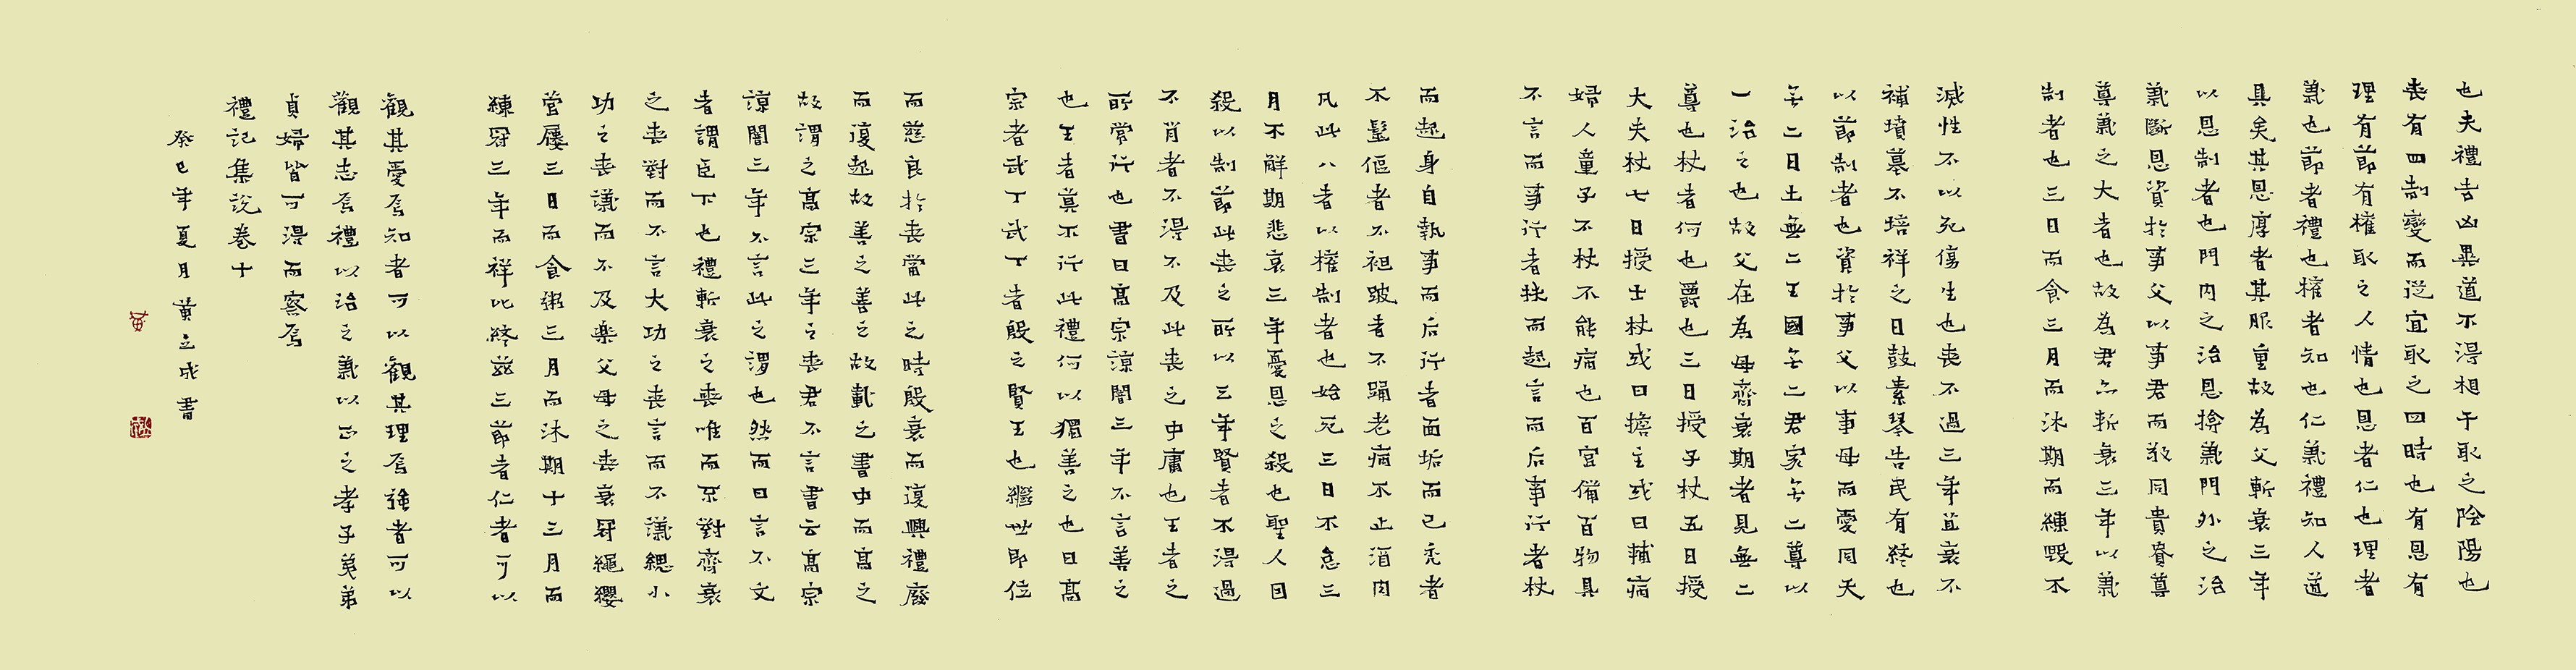 也夫禮吉凶異道不得相干取之陰陽也
喪有四制變而從宜取之四時也有恩有
理有節有權取之人情也恩者仁也理者
義也節者禮也權者知也仁義禮知人道
具矣其恩厚者其服重故為父斬衰三年
以恩制者也門內之治恩揜義門外之治
義斷恩資於事父以事君而敬同貴貴尊
尊義之大者也故為君亦斬衰三年以義
制者也三日而食三月而沐期而練毀不
滅性不以死傷生也喪不過三年苴衰不
補墳墓不培祥之日鼓素琴告民有終也
以節制者也資於事父以事母而愛同天
无二日土無二王國无二君家无二尊以
一治之也故父在為母齊衰期者見無二
尊也杖者何也爵也三日授子杖五日授
大夫杖七日授士杖或曰擔主或曰輔病
婦人童子不杖不能病也百官備百物具
不言而事行者扶而起言而后事行者杖
而起身自執事而后行者面垢而已禿者
不髽傴者不袒跛者不踊老病不止酒肉
凡此八者以權制者也始死三日不怠三
月不解期悲哀三年憂恩之殺也聖人因
殺以制節此喪之所以三年賢者不得過
不肖者不得不及此喪之中庸也王者之
所常行也書曰高宗諒闇三年不言善之
也王者莫不行此禮何以獨善之也曰高
宗者武丁武丁者殷之賢王也繼世即位
而慈良於喪當此之時殷衰而復興禮廢
而復起故善之善之故載之書中而高之
故謂之高宗三年之喪君不言書云高宗
諒闇三年不言此之謂也然而曰言不文
者謂臣下也禮斬衰之喪唯而不對齊衰
之喪對而不言大功之喪言而不議緦小
功之喪議而不及樂父母之喪衰冠繩纓
菅屨三日而食粥三月而沐期十三月而
練冠三年而祥比終茲三節者仁者可以
觀其愛焉知者可以觀其理焉強者可以
觀其志焉禮以治之義以正之孝子弟弟
貞婦皆可得而察焉
禮記集說卷十
癸巳年夏月黃立成書
黃